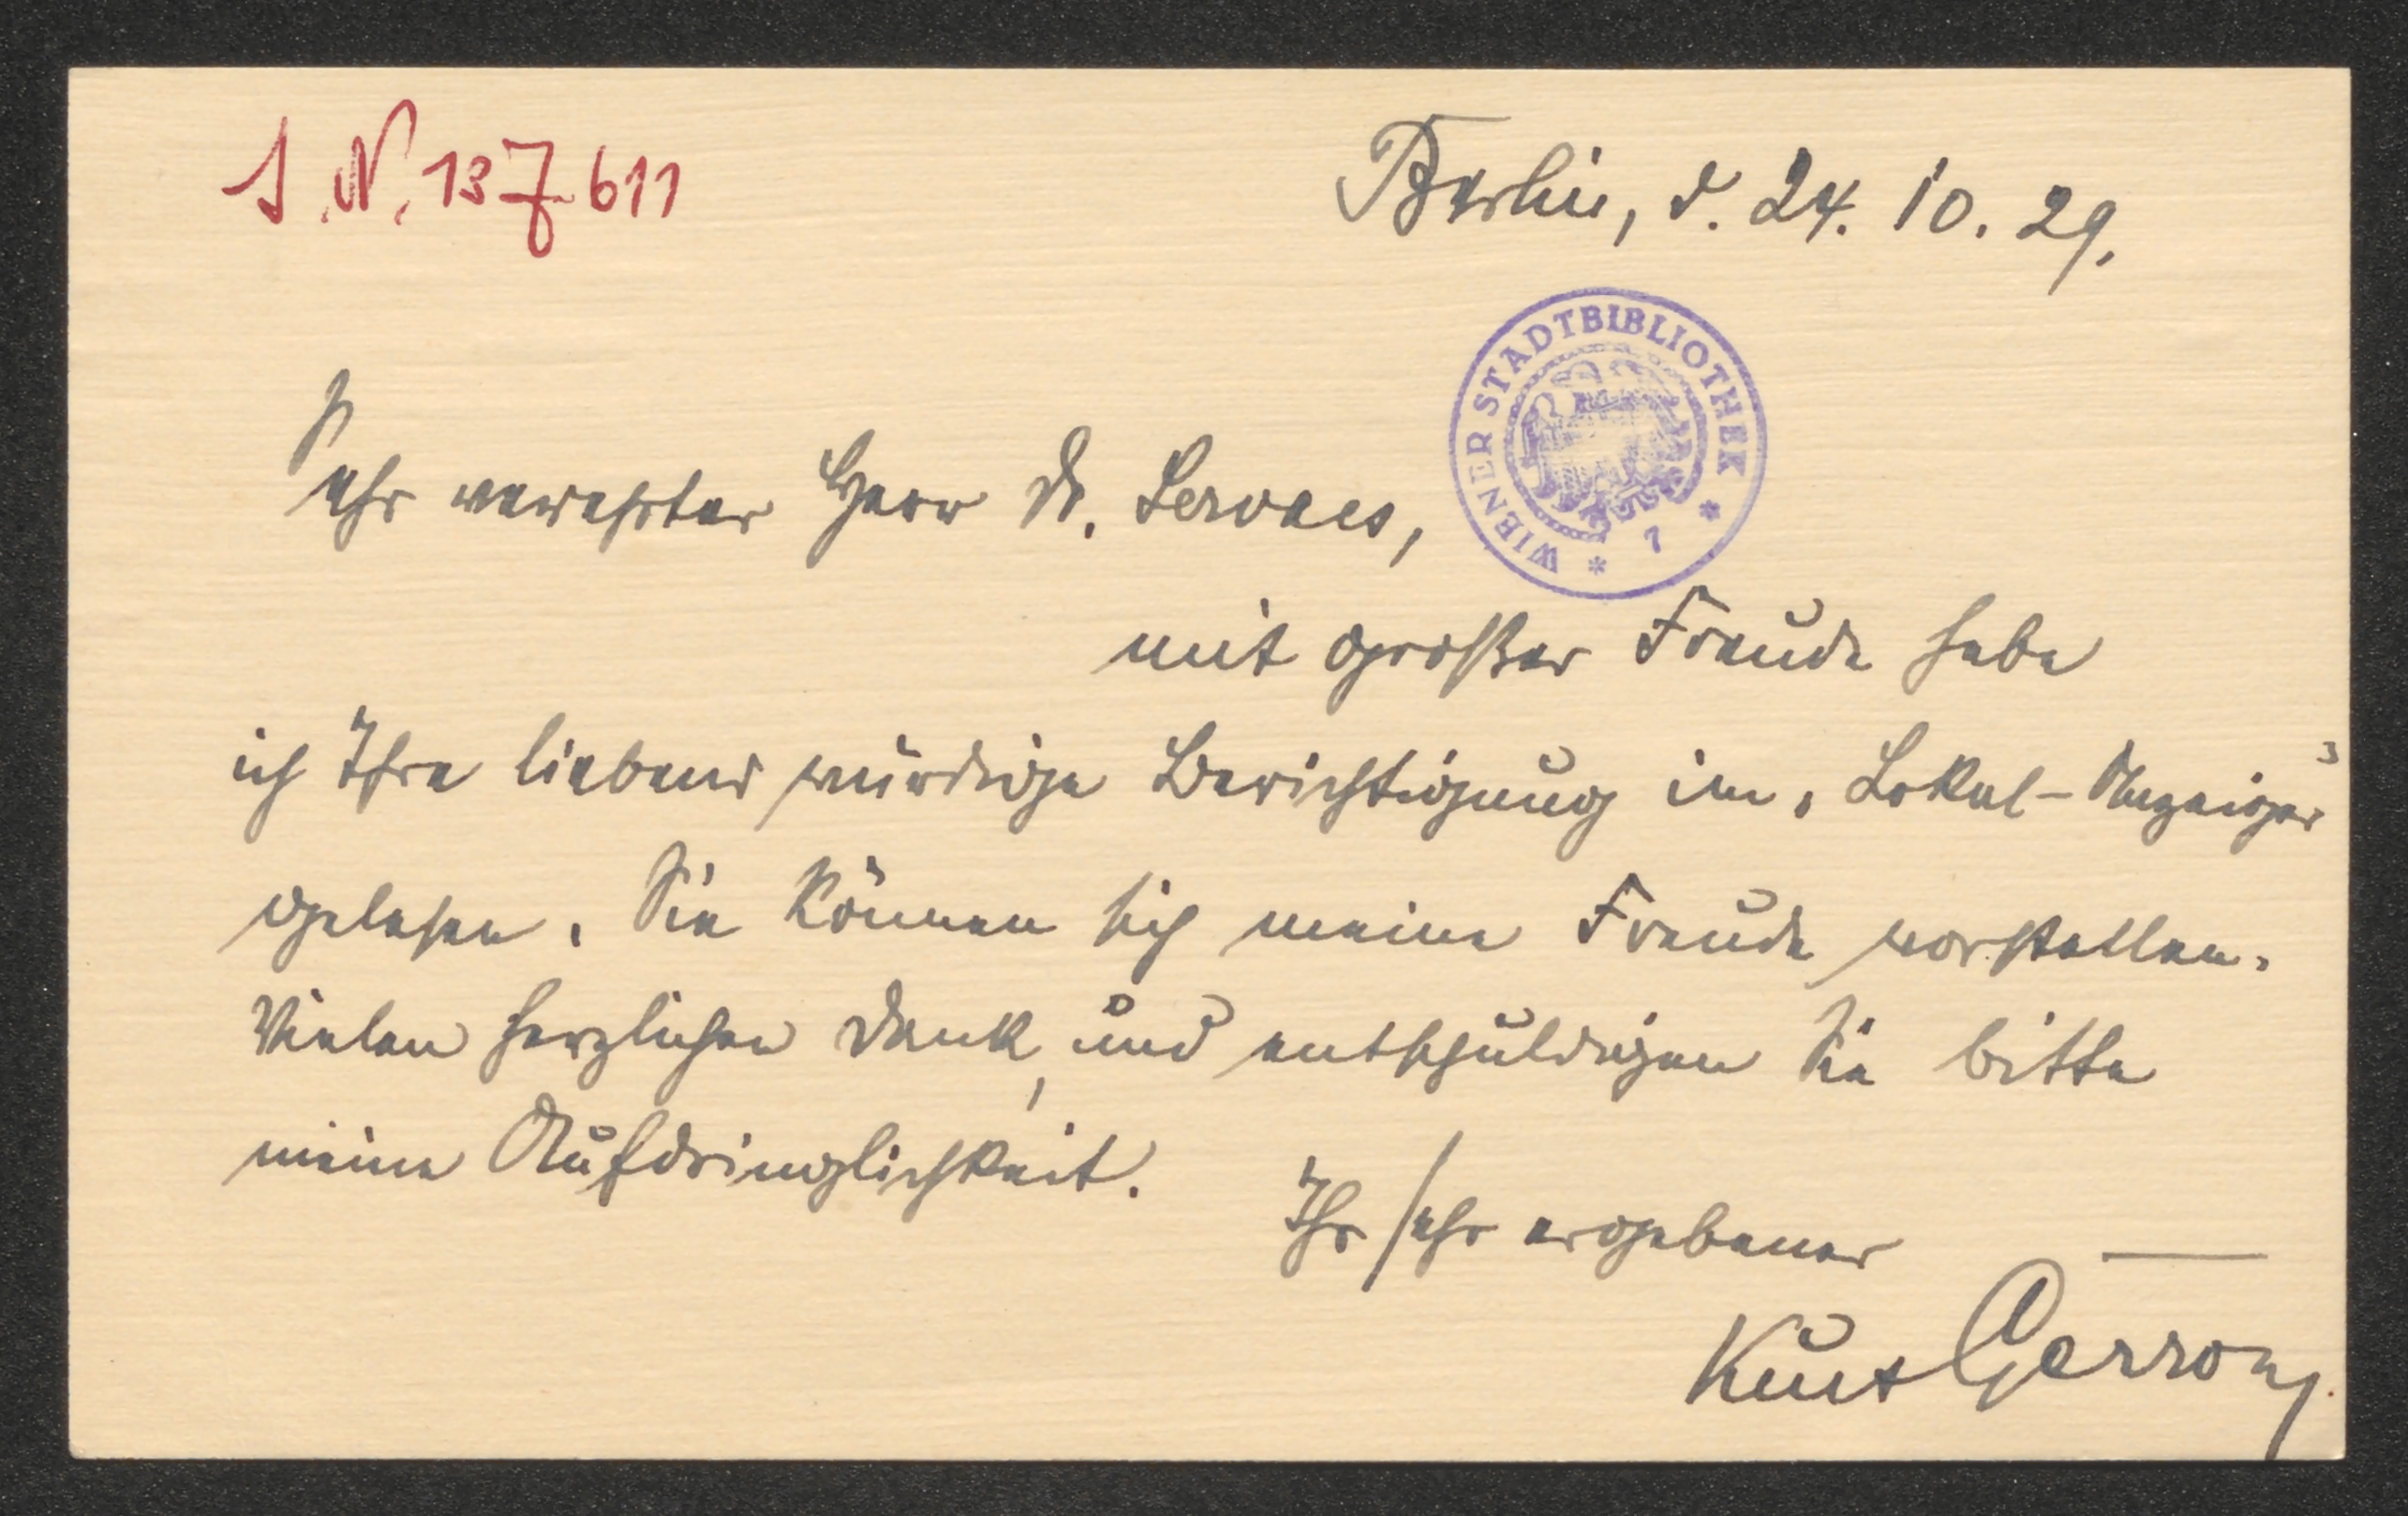 J.N. 137611
Berlin, d. 24. 10. 29.
WIENER STADTBIBLIOTHEK * 7 *
Sehr verehrter Herr Dr. Servaes,
mit großer Freude habe
ich Ihre liebenswürdige Berichtigung im „Lokal-Anzeiger"
gelesen. Sie können sich meine Freude vorstellen.
Vielen herzlichen Dank, und entschuldigen Sie bitte
meine Aufdringlichkeit.
Ihr sehr ergebener
Kurt Gerron.